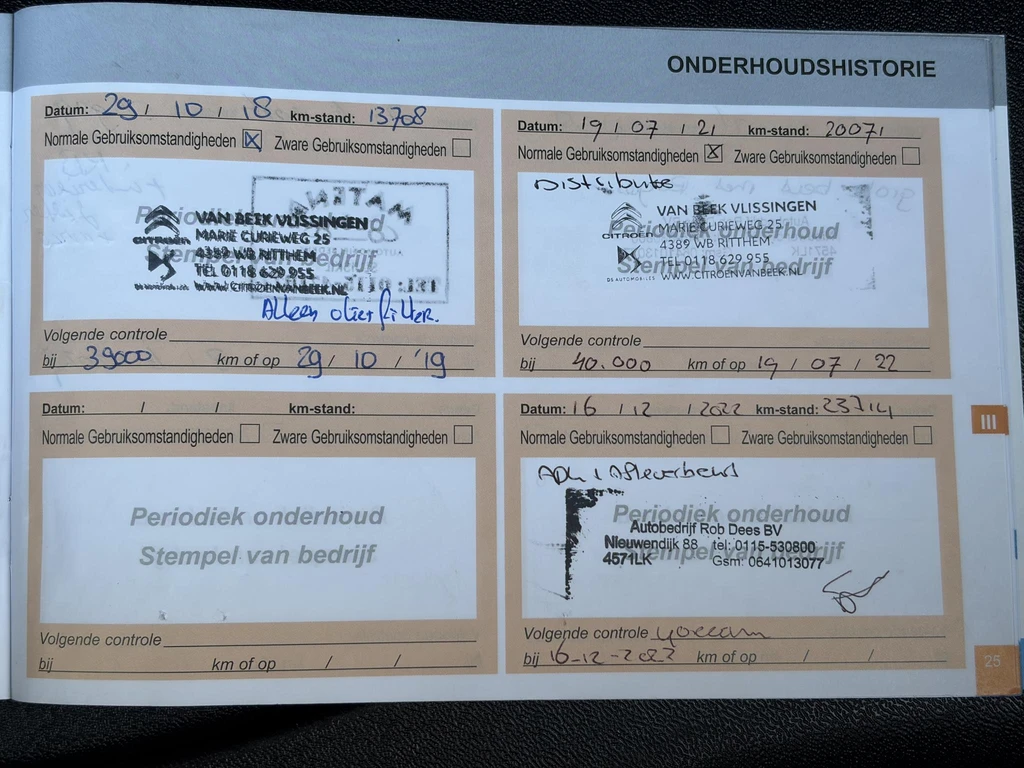 ONDERHOUDSHISTORIE
Datum: 29 / 10 / 18 km-stand: 13708
Normale Gebruiksomstandigheden Zware Gebruiksomstandigheden
Periodiek onderhoud
Stempel van bedrijf
MATENA
CITROËN
VAN BEEK VLISSINGEN
MARIE CURIEWEG 25
4389 WB RITTHEM
TEL 0118 629 955
DS AUTOMOBILES WWW.CITROENVANBEEK.NL
Alleen olie+filter.
Volgende controle
bij 39000 km of op 29 / 10 / '19
Datum: 19 / 07 / 21 km-stand: 20071
Normale Gebruiksomstandigheden Zware Gebruiksomstandigheden
Distributie
Periodiek onderhoud
Stempel van bedrijf
CITROËN
VAN BEEK VLISSINGEN
MARIE CURIEWEG 25
4389 WB RITTHEM
TEL 0118 629 955
DS AUTOMOBILES WWW.CITROENVANBEEK.NL
Volgende controle
bij 40.000 km of op 19 / 07 / 22
Datum: / / km-stand:
Normale Gebruiksomstandigheden Zware Gebruiksomstandigheden
Periodiek onderhoud
Stempel van bedrijf
Volgende controle
bij km of op / /
Datum: 16 / 12 / 2022 km-stand: 23714
Normale Gebruiksomstandigheden Zware Gebruiksomstandigheden
Periodiek onderhoud
Stempel van bedrijf
Autobedrijf Rob Dees BV
Nieuwendijk 88 tel: 0115-530800
4571LK Gsm: 0641013077
Volgende controle
bij 16-12-2023 km of op / /
III
25